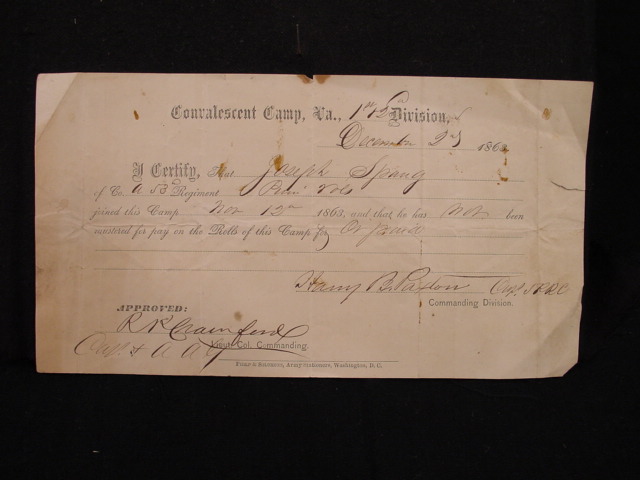 Convalescent Camp, Va., 1st & 2d Division,
December 2nd 1863
I Certify, that Joseph Spang
of Co. A 53 Regiment Penn Vols
joined this Camp Nov 12th 1863, and that he has Not been
mustered for pay on the Rolls of this Camp for Or paid
Harry B. Paxton Capt.
Commanding Division.
APPROVED:
R K Crawford
Lieut. Col. Commanding.
Capt & A A G
Army Stationers, Washington, D. C.